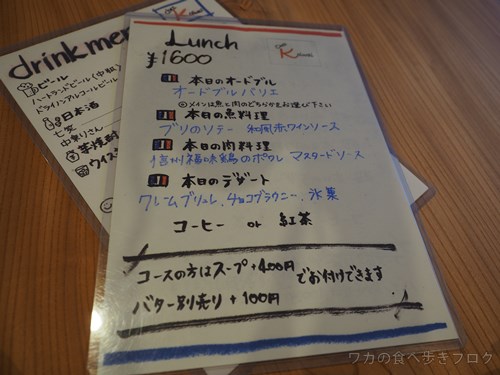 Lunch
¥1600
本日のオードブル
オードブルバリエ
※メインは魚と肉のどちらかをお選び下さい
本日の魚料理
ブリのソテー 和風赤ワインソース
本日の肉料理
信州福味鶏のポワレ マスタードソース
本日のデザート
クレームブリュレ、チョコブラウニー、氷菓
コーヒー or 紅茶
コースの方はスープ+400円
でお付けできます
バター別売り +100円
drink men
ビール
ハートランドビール(中瓶)
ドライノンアルコールビール
日本酒
七笑
中乗りさん
芋焼酎
ウイス
ワカの食べ歩きブログ